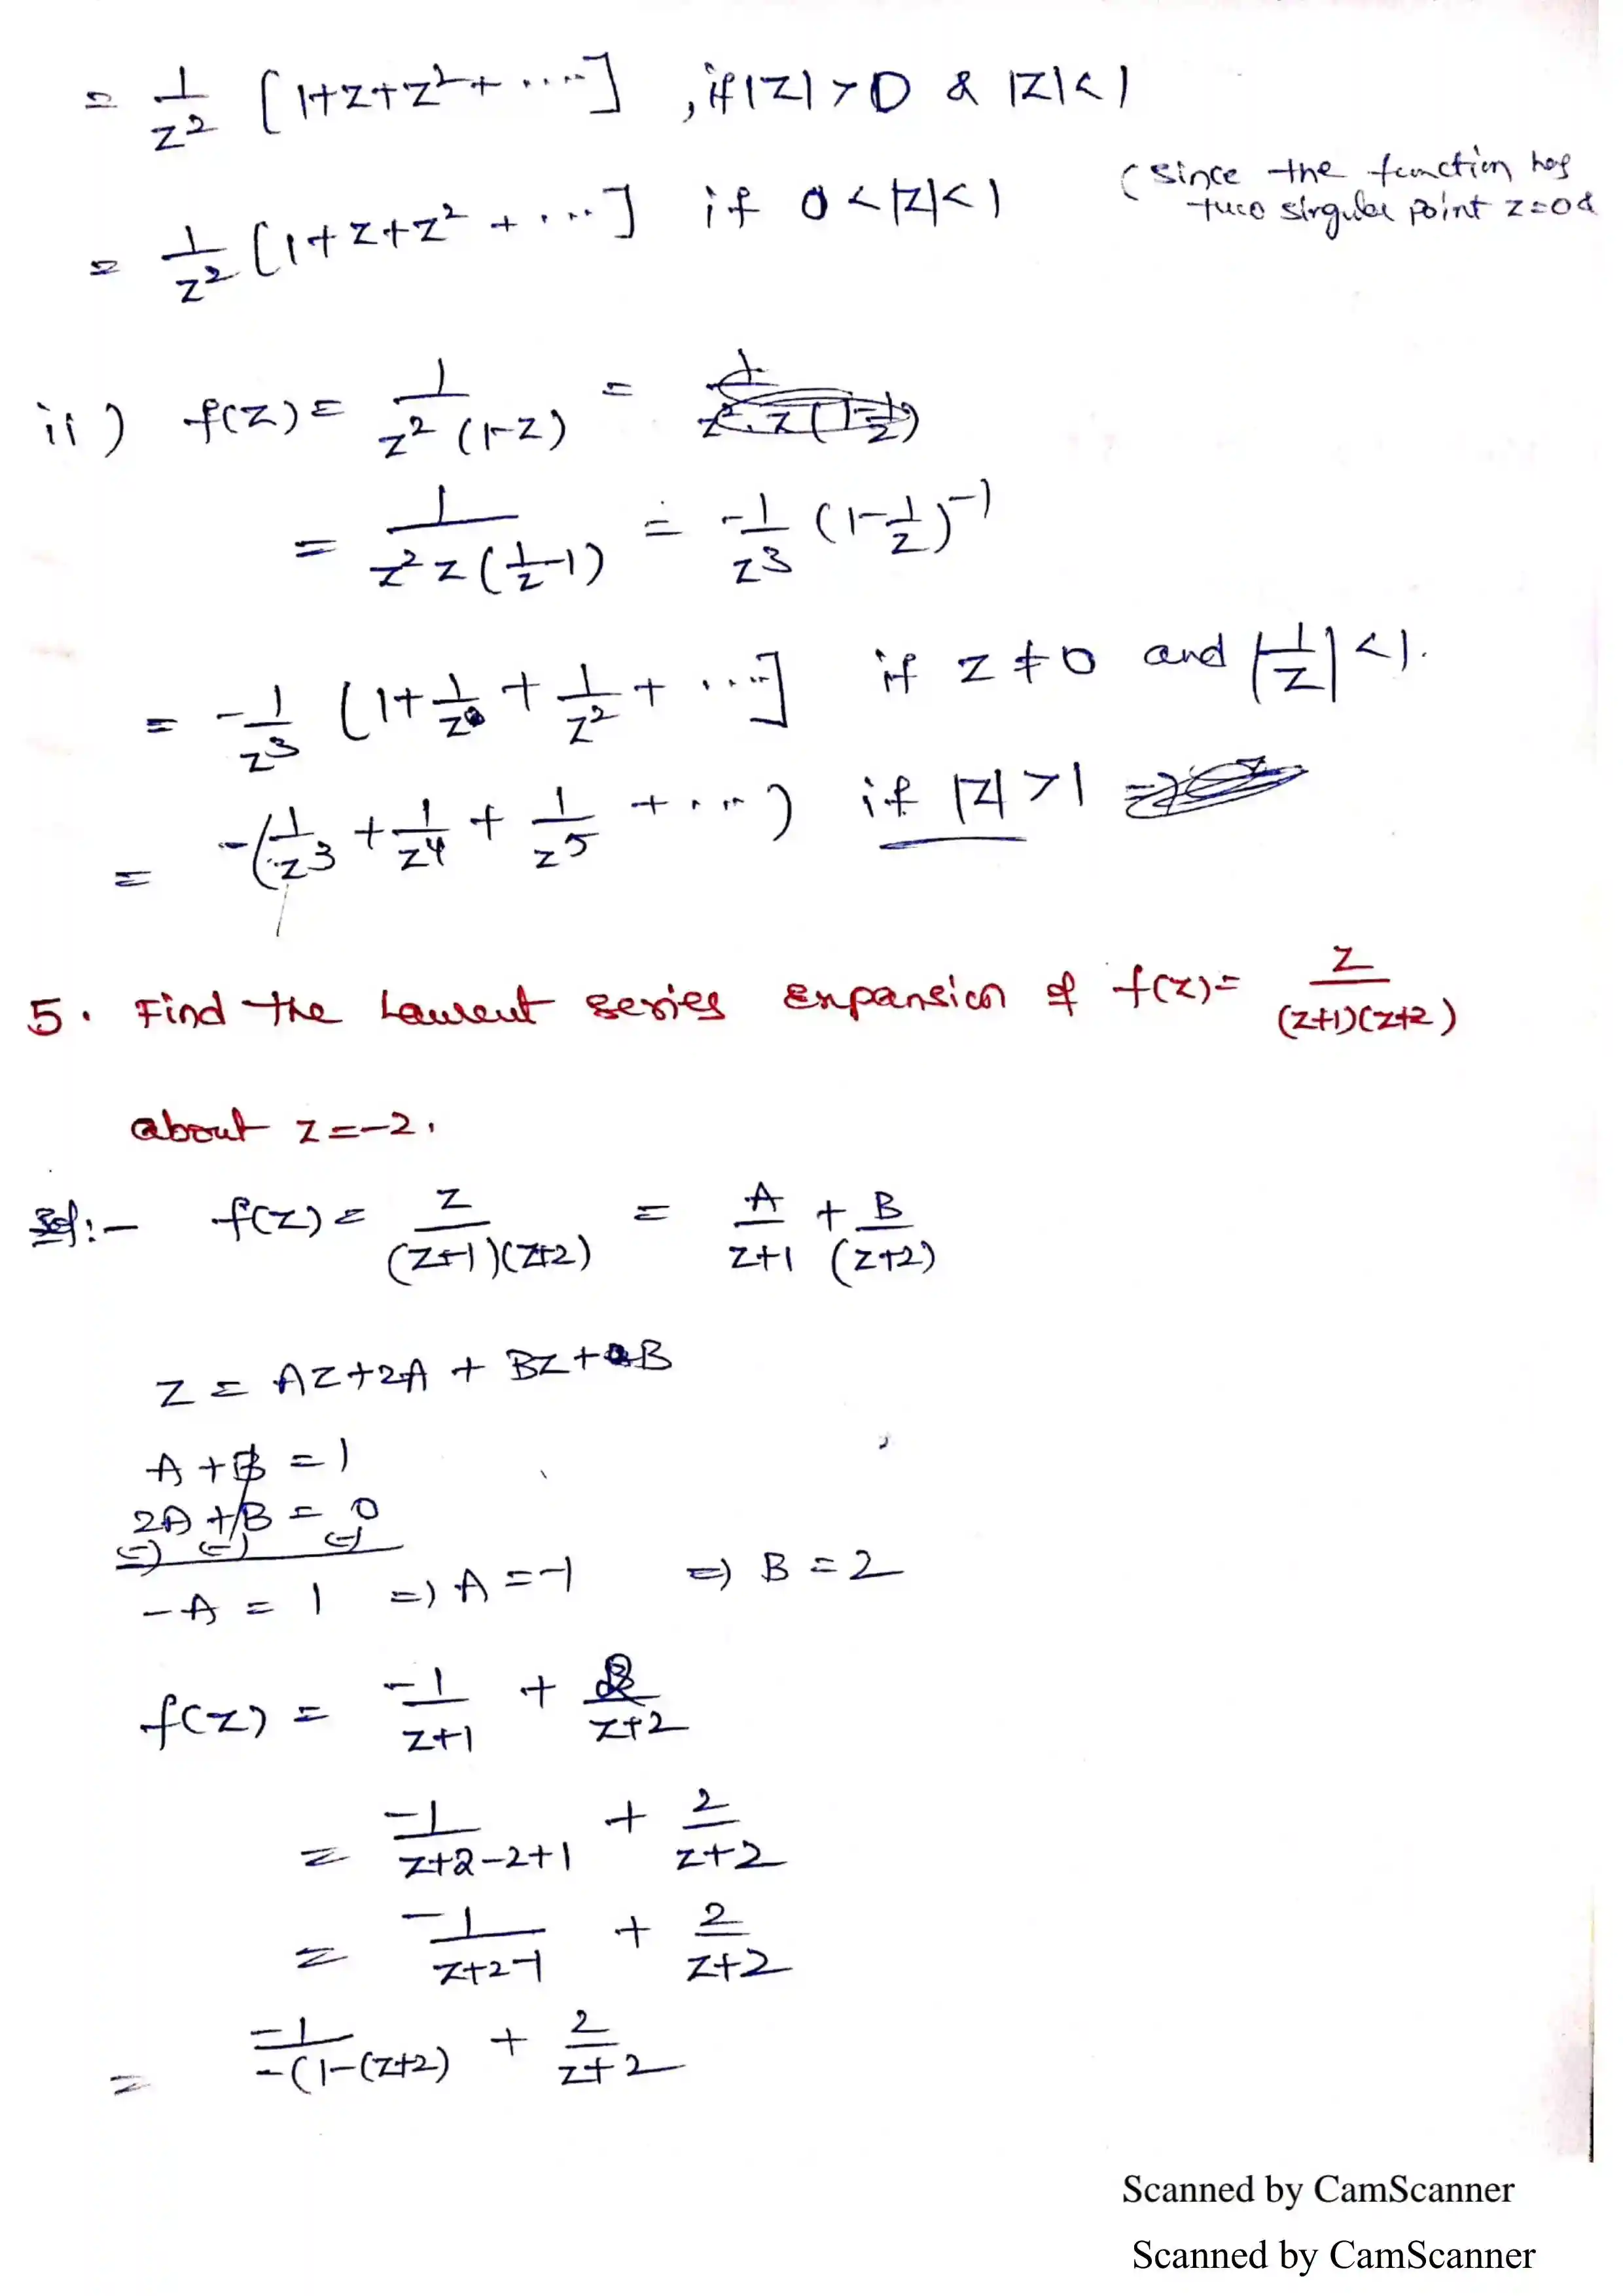 = 1/z² [1+z+z²+ .....] , if |z| > 0 & |z| < 1
= 1/z² [1+z+z² + ....] if 0 < |z| < 1 (since the function has two singular point z=0 &
ii) f(z) = 1/z²(1-z) =
= 1/z² z(1/z-1) = -1/z³ (1-1/z)⁻¹
= -1/z³ [1+1/z + 1/z² + .....] if z ≠ 0 and |1/z| < 1.
= -(1/z³ + 1/z⁴ + 1/z⁵ + ....) if |z| > 1
5. Find the Laurent series expansion of f(z) = z/(z+1)(z+2)
about z = -2.
Sol:- f(z) = z/(z+1)(z+2) = A/z+1 + B/(z+2)
z = Az+2A + Bz+B
A + B = 1
2A + B = 0
(-) (-) (-)
-A = 1 => A = -1 => B = 2
f(z) = -1/z+1 + 2/z+2
= -1/z+2-2+1 + 2/z+2
= -1/z+2-1 + 2/z+2
= -1/-(1-(z+2) + 2/z+2
Scanned by CamScanner
Scanned by CamScanner